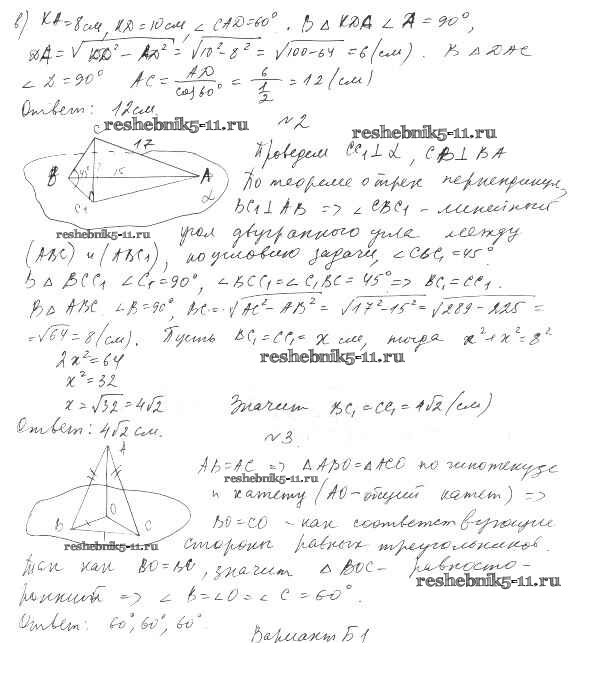 в) KA = 8 см, KD = 10 см, ∠ CAD = 60°. В △ KDA ∠ A = 90°,
DA = √(KD² − AD²) = √(10² − 8²) = √(100 − 64) = 6 (см). В △ DAC
∠ D = 90° AC = AD/cos 60° = 6/(1/2) = 12 (см)
Ответ: 12 см.
reshebnik5-11.ru
№2
reshebnik5-11.ru
C 17
B 45° 15 A
C1 α
Проведем CC₁ ⊥ α, CB ⊥ BA
По теореме о трех перпендикул,
BC₁ ⊥ AB => ∠ CBC₁ - линейный
reshebnik5-11.ru
угол двугранного угла между
(ABC) и (ABC₁), по условию задачи, ∠ CBC₁ = 45°
В △ BCC₁ ∠ C₁ = 90°, ∠ BCC₁ = ∠ C₁BC = 45° => BC₁ = CC₁.
В △ ABC ∠ B = 90°, BC = √(AC² − AB²) = √(17² − 15²) = √(289 − 225) =
= √64 = 8 (см). Пусть BC₁ = CC₁ = x см, тогда x² + x² = 8²
2x² = 64
reshebnik5-11.ru
x² = 32
x = √32 = 4√2 Значит BC₁ = CC₁ = 4√2 (см)
Ответ: 4√2 см.
№3.
A
B O C
AB = AC => △ ABO = △ ACO по гипотенузе
reshebnik5-11.ru
и катету (AO - общий катет) =>
BO = CO - как соответствующие
reshebnik5-11.ru
стороны равных треугольников.
Так как BO = BC, значит △ BOC - равносто-
reshebnik5-11.ru
ронний => ∠ B = ∠ O = ∠ C = 60°.
Ответ: 60°, 60°, 60°.
Вариант Б1